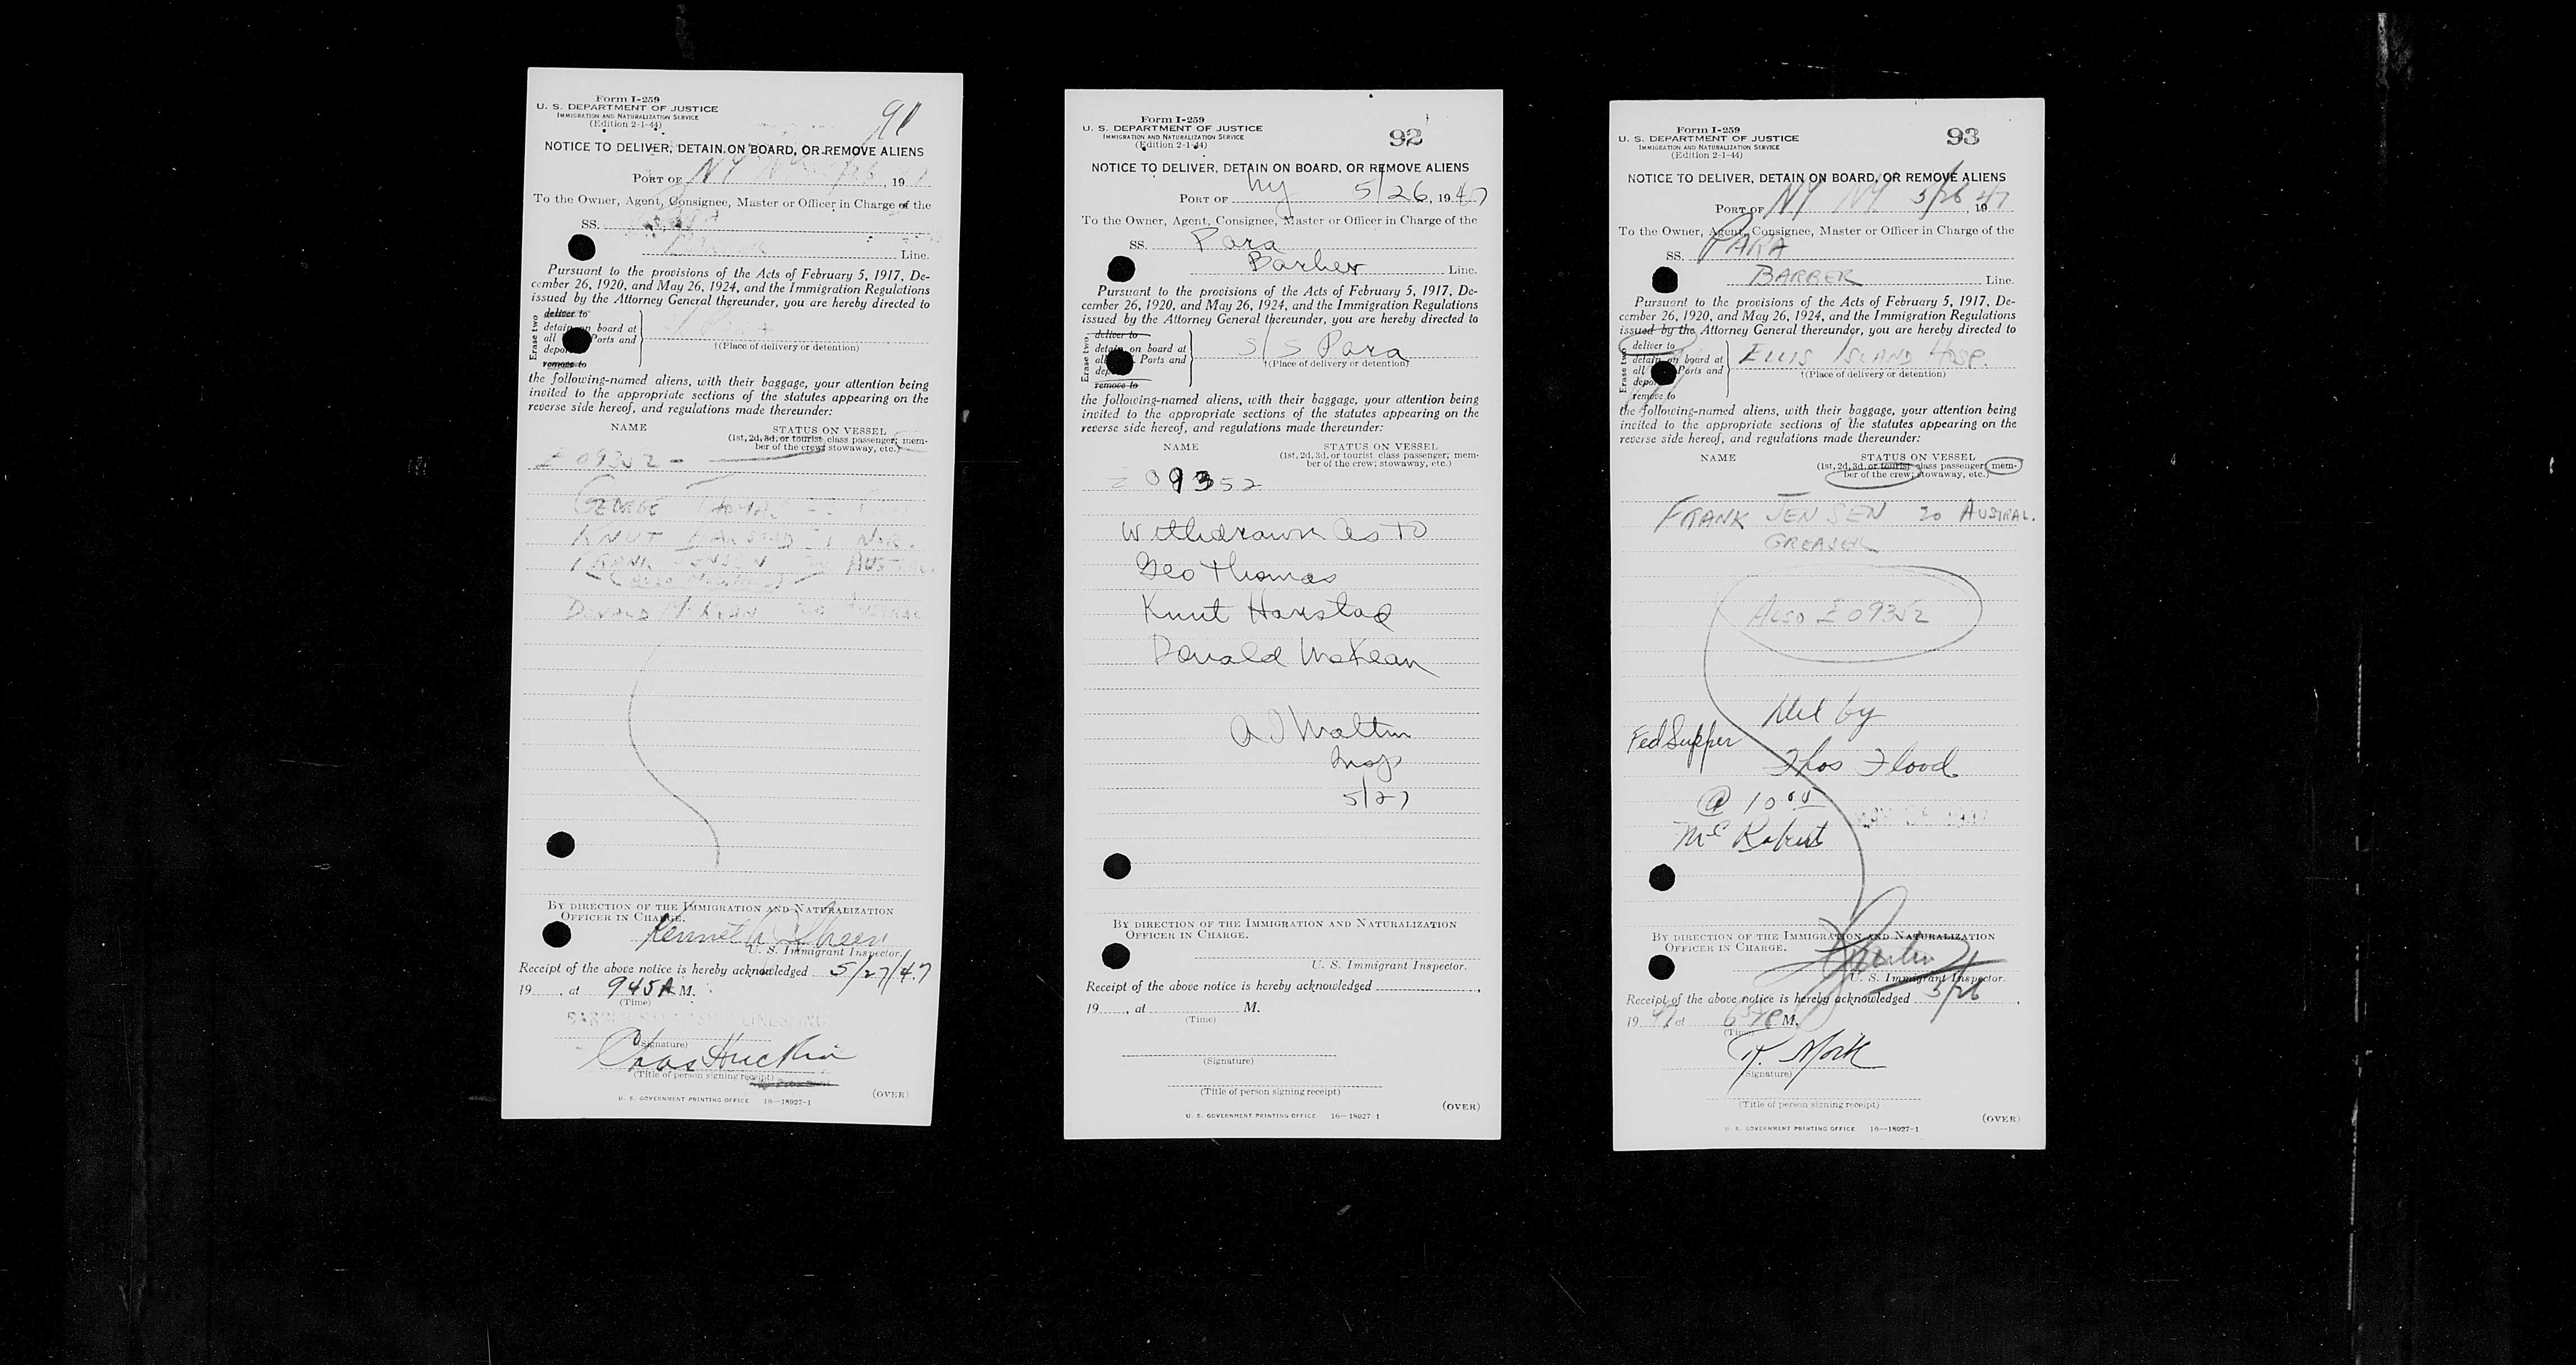 Form I-259
U. S. DEPARTMENT OF JUSTICE
IMMIGRATION AND NATURALIZATION SERVICE
(Edition 2-1-44)
91
NOTICE TO DELIVER, DETAIN ON BOARD, OR REMOVE ALIENS
PORT OF NY NY 5/26, 19
To the Owner, Agent, Consignee, Master or Officer in Charge of the
SS.
Line.
Pursuant to the provisions of the Acts of February 5, 1917, De-
cember 26, 1920, and May 26, 1924, and the Immigration Regulations
issued by the Attorney General thereunder, you are hereby directed to
Erase two
deliver to
detain on board at
all Ports and
depor
remove to
†(Place of delivery or detention)
the following-named aliens, with their baggage, your attention being
invited to the appropriate sections of the statutes appearing on the
reverse side hereof, and regulations made thereunder:
NAME STATUS ON VESSEL
(1st, 2d, 3d, or tourist class passenger; mem-
ber of the crew; stowaway, etc.)
E 09352 -
GEORGE THOMAS
KNUT HARSTAD NOR.
FRANK JENSEN 20 AUSTRAL.
DONALD McKEAN 20 AUSTRAL
BY DIRECTION OF THE IMMIGRATION AND NATURALIZATION
OFFICER IN CHARGE.
Kenneth
U. S. Immigrant Inspector.
Receipt of the above notice is hereby acknowledged 5/27/47
19 , at 945 A M.
(Time)
BARBER STEAMSHIP LINES, INC.
(Signature)
Chas
(Title of person signing receipt)
(OVER)
U. S. GOVERNMENT PRINTING OFFICE 16—18927-1
Form I-259
U. S. DEPARTMENT OF JUSTICE
IMMIGRATION AND NATURALIZATION SERVICE
(Edition 2-1-44)
92
NOTICE TO DELIVER, DETAIN ON BOARD, OR REMOVE ALIENS
PORT OF Ny 5/26, 1947
To the Owner, Agent, Consignee, Master or Officer in Charge of the
SS. Para
Barber Line.
Pursuant to the provisions of the Acts of February 5, 1917, De-
cember 26, 1920, and May 26, 1924, and the Immigration Regulations
issued by the Attorney General thereunder, you are hereby directed to
Erase two
deliver to
detain on board at
all Ports and
dep
remove to
S/S Para
†(Place of delivery or detention)
the following-named aliens, with their baggage, your attention being
invited to the appropriate sections of the statutes appearing on the
reverse side hereof, and regulations made thereunder:
NAME STATUS ON VESSEL
(1st, 2d, 3d, or tourist class passenger; mem-
ber of the crew; stowaway, etc.)
E 09352
Withdrawn as to
Geo Thomas
Knut Harstad
Donald McKean
Insp
5/27
BY DIRECTION OF THE IMMIGRATION AND NATURALIZATION
OFFICER IN CHARGE.
U. S. Immigrant Inspector.
Receipt of the above notice is hereby acknowledged ,
19 , at M.
(Time)
(Signature)
(Title of person signing receipt)
(OVER)
U. S. GOVERNMENT PRINTING OFFICE 16—18927-1
Form I-259
U. S. DEPARTMENT OF JUSTICE
IMMIGRATION AND NATURALIZATION SERVICE
(Edition 2-1-44)
93
NOTICE TO DELIVER, DETAIN ON BOARD, OR REMOVE ALIENS
PORT OF NY NY 5/26, 1947
To the Owner, Agent, Consignee, Master or Officer in Charge of the
SS. PARA
BARBER Line.
Pursuant to the provisions of the Acts of February 5, 1917, De-
cember 26, 1920, and May 26, 1924, and the Immigration Regulations
issued by the Attorney General thereunder, you are hereby directed to
Erase two
deliver to
detain on board at
all Ports and
depor
remove to
ELLIS ISLAND HOSP.
†(Place of delivery or detention)
the following-named aliens, with their baggage, your attention being
invited to the appropriate sections of the statutes appearing on the
reverse side hereof, and regulations made thereunder:
NAME STATUS ON VESSEL
(1st, 2d, 3d, or tourist class passenger; mem-
ber of the crew; stowaway, etc.)
FRANK JENSEN 20 AUSTRAL.
GREASER
ALSO E 09352
Del by
Fed Supper
Thos Flood
@ 10 05
McRobert
BY DIRECTION OF THE IMMIGRATION AND NATURALIZATION
OFFICER IN CHARGE.
U. S. Immigrant Inspector.
Receipt of the above notice is hereby acknowledged 5/26 ,
1947 at P M.
(Time)
(Signature)
(Title of person signing receipt)
(OVER)
U. S. GOVERNMENT PRINTING OFFICE 16—18927-1